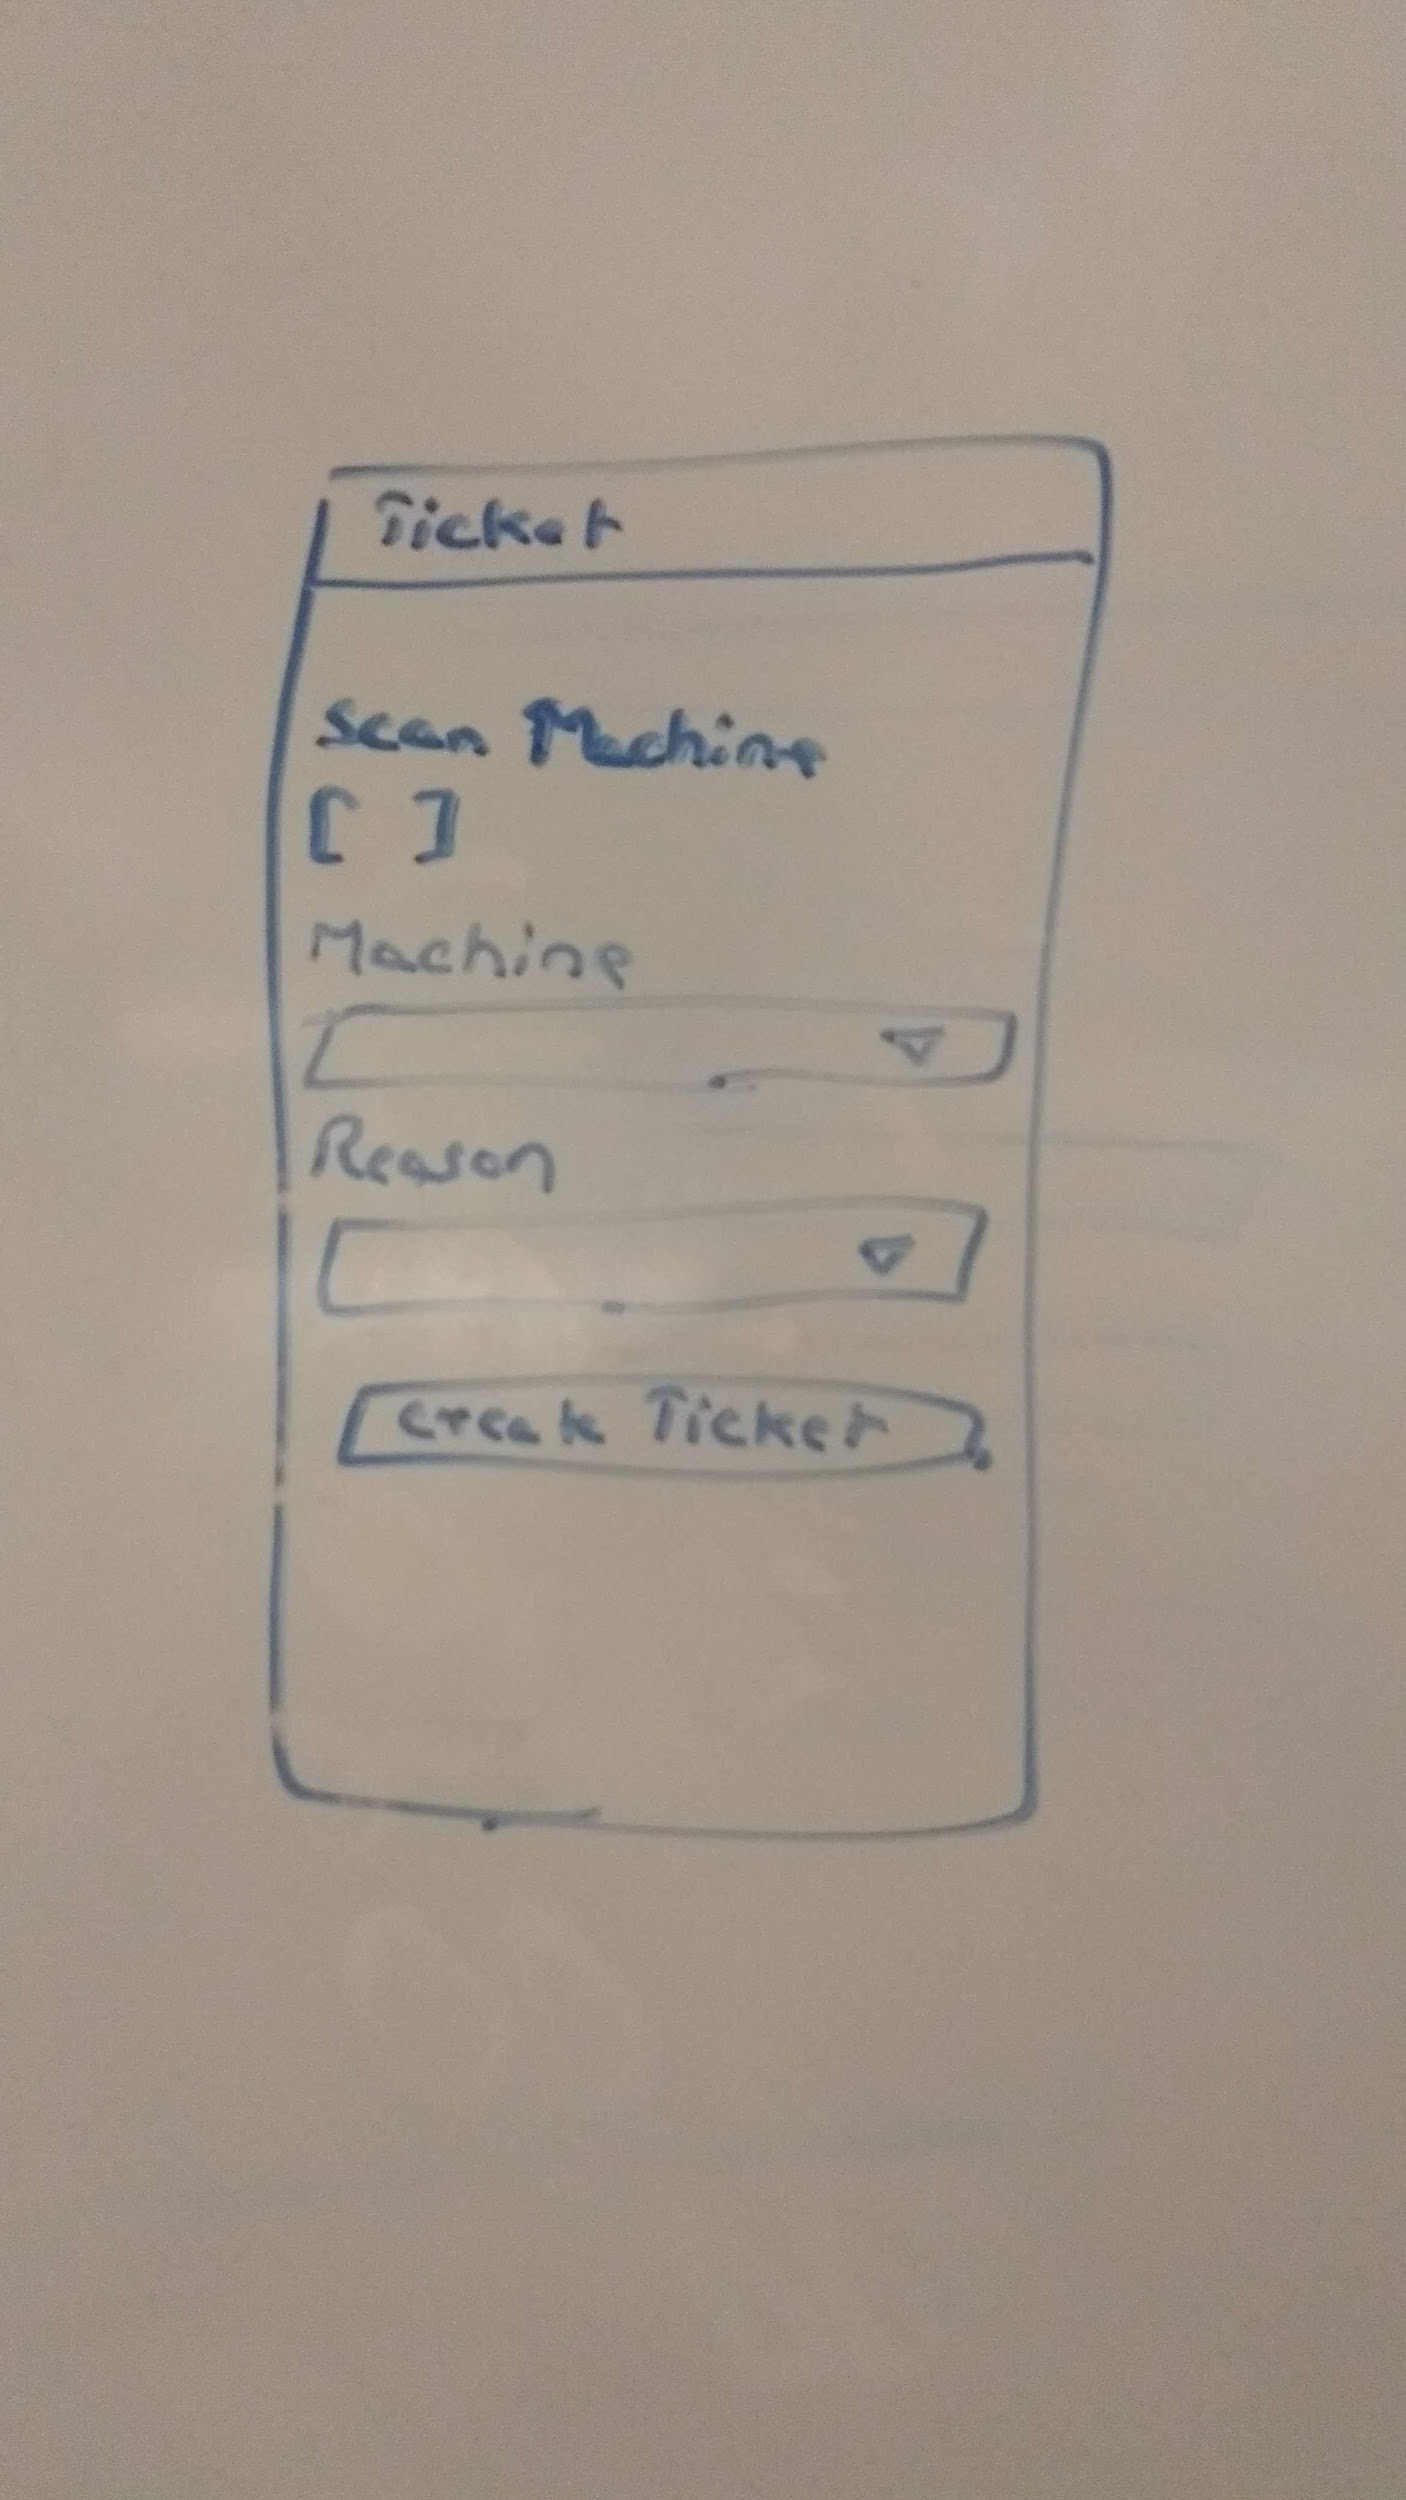 Ticket
Scan Machine
[ ]
Machine
Reason
Create Ticket